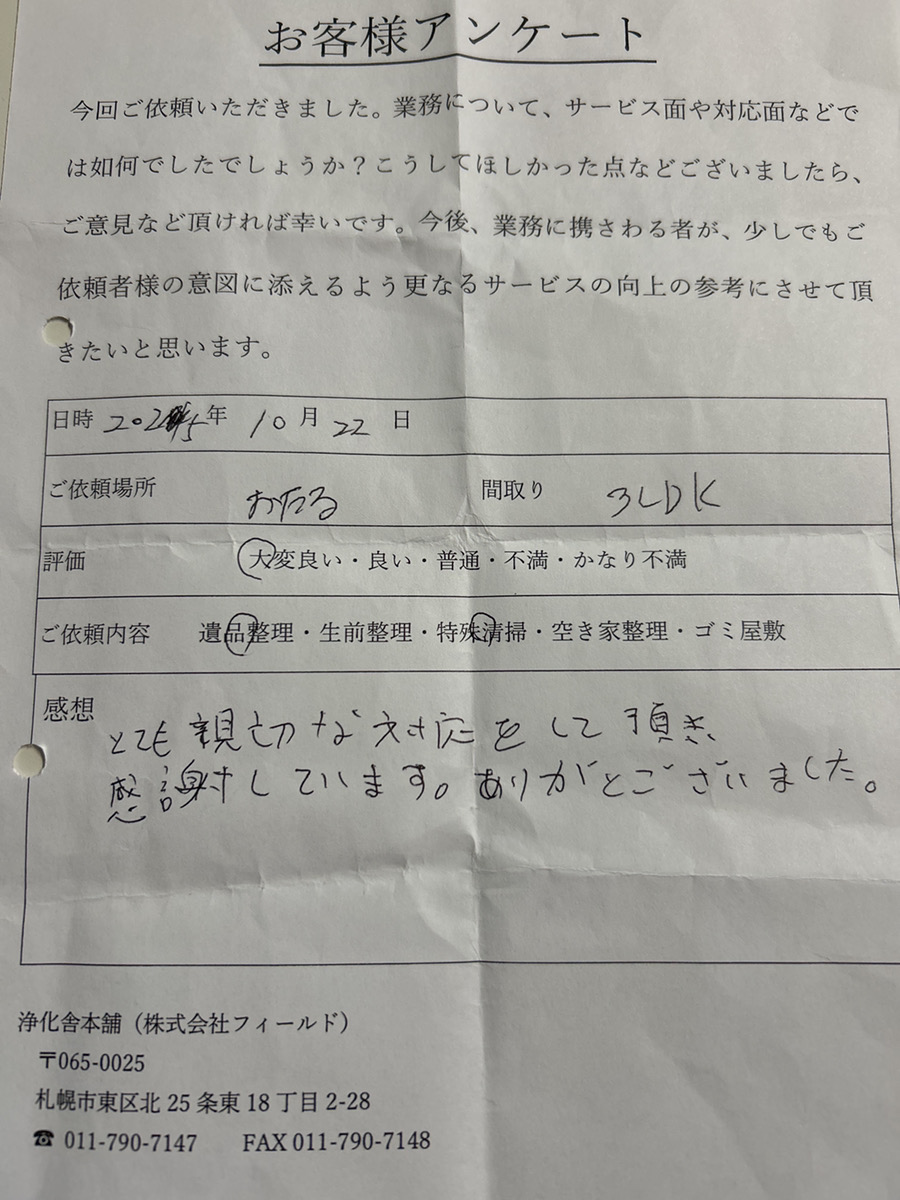 お客様アンケート
今回ご依頼いただきました。業務について、サービス面や対応面などで
は如何でしたでしょうか？こうしてほしかった点などございましたら、
ご意見など頂ければ幸いです。今後、業務に携さわる者が、少しでもご
依頼者様の意図に添えるよう更なるサービスの向上の参考にさせて頂
きたいと思います。
日時 2025年 10月 22 日
ご依頼場所 おたる 間取り 3LDK
評価 大変良い・良い・普通・不満・かなり不満
ご依頼内容 遺品整理・生前整理・特殊清掃・空き家整理・ゴミ屋敷
感想
とても親切な対応をして頂き
感謝しています。ありがとございました。
浄化舎本舗（株式会社フィールド）
〒065-0025
札幌市東区北 25 条東 18 丁目 2-28
☎ 011-790-7147 FAX 011-790-7148